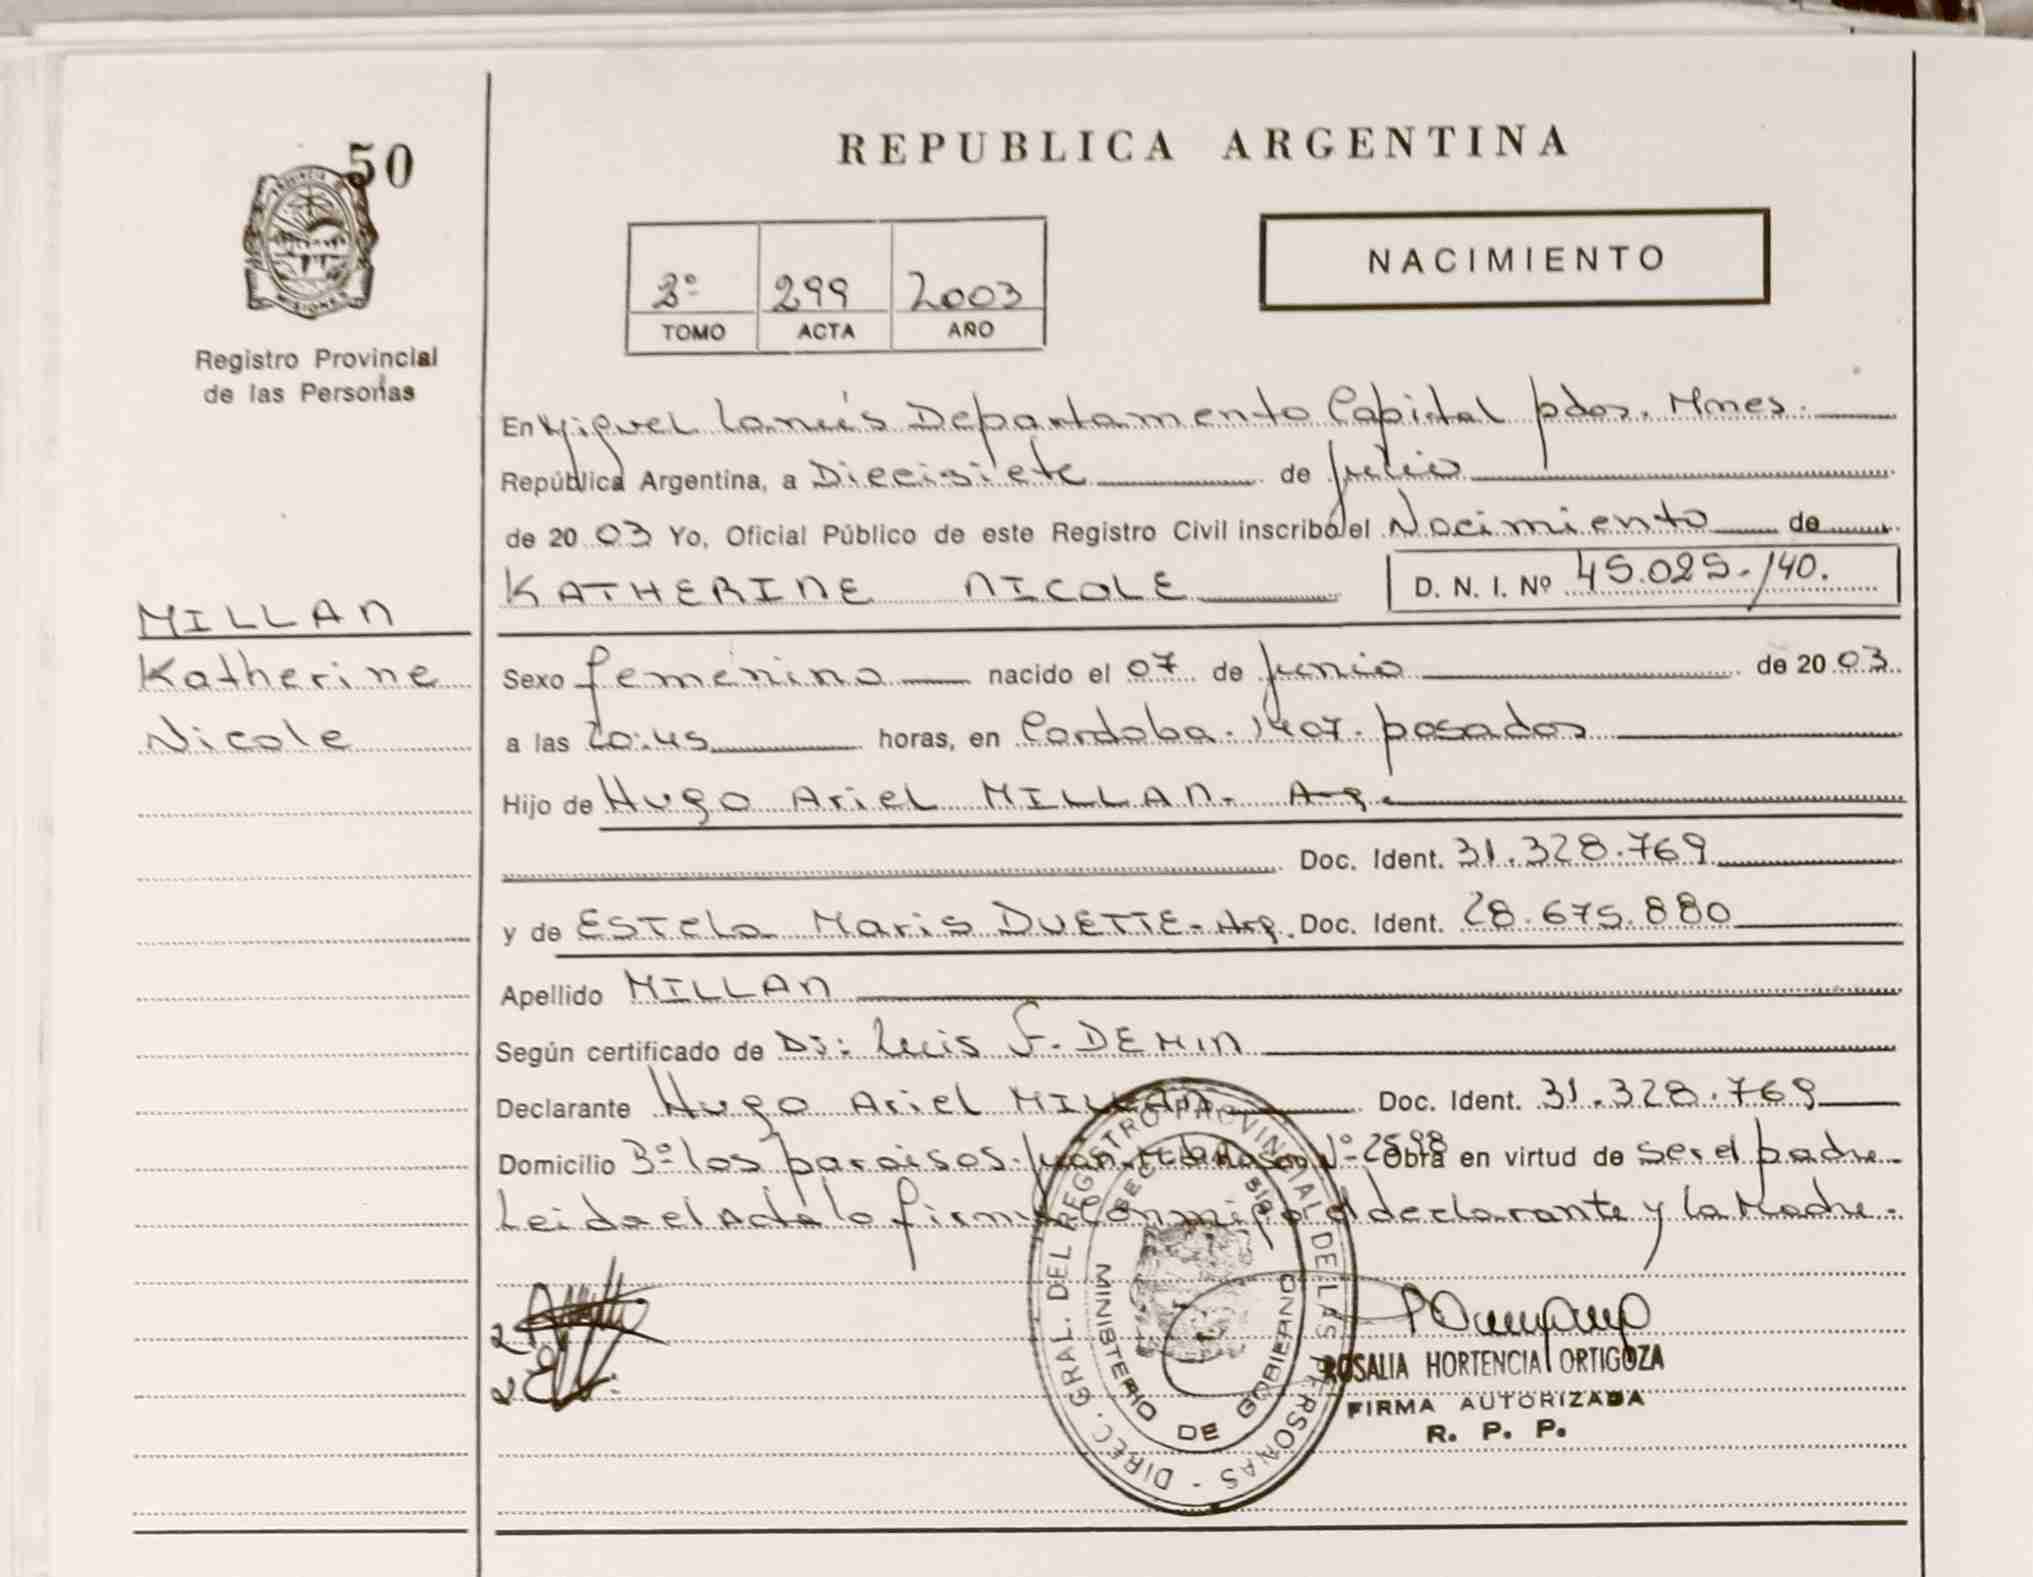 50
PROVINCIA
MISIONES
Registro Provincial
de las Personas
REPUBLICA ARGENTINA
NACIMIENTO
299 2003
TOMO ACTA AÑO
En Miguel Lanús Departamento Capital pdas. Mnes.
República Argentina, a Diecisiete de Julio
de 2003 Yo, Oficial Público de este Registro Civil inscribo el Nacimiento de
KATHERINE NICOLE D. N. I. Nº 45.025.140.
MILLAN
Katherine
Nicole
Sexo femenino nacido el 07 de Junio de 2003
a las 20:45 horas, en Cordoba. 1407. posadas
Hijo de Hugo Ariel MILLAN. Arg.
Doc. Ident. 31.328.769
y de EsTela Maris DUETTE- Arg. Doc. Ident. 28.675.880
Apellido MILLAN
Según certificado de Dr: Luis F. DEMIN
Declarante Hugo Ariel MILLAN Doc. Ident. 31.328.769
Domicilio los paraisos. Obra en virtud de ser el padre
Leida el Acta lo firma conmigo el declarante y la Madre.
DIREC. GRAL. DEL REGISTRO PROVINCIAL DE LAS PERSONAS
MINISTERIO DE GOBIERNO
ROSALIA HORTENCIA ORTIGOZA
FIRMA AUTORIZADA
R. P. P.